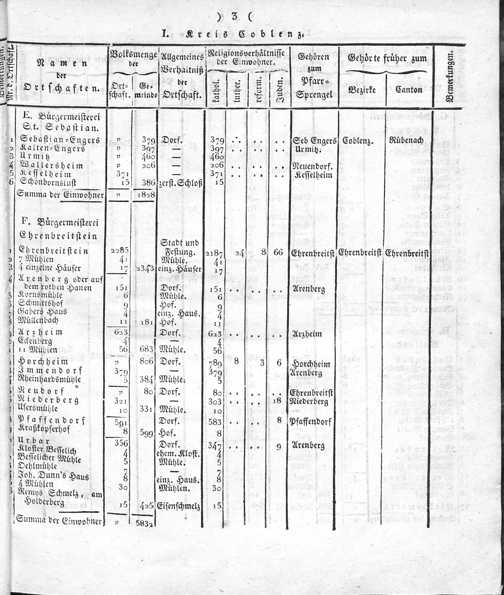 ) 3 (
I. Kreis Coblenz.
Namen der Ortschaften. Volksmenge der Ort-schaft. Ge-meinde Allgemeines Verhältniß der Ortschaft. Religionsverhältnisse der Einwohner. kathol. luther. reform. Juden. Gehören zum Pfarr-Sprengel Gehörte früher zum Bezirke Canton Bemerkungen.
E. Bürgermeisterei
St. Sebastian.
1 Sebastian-Engers " 379 Dorf. 379 Seb Engers Coblenz. Rübenach
2 Kalten-Engers " 397 — 397 Urmitz.
3 Urmitz " 460 — 460
4 Wallersheim " 206 — 206 Neuendorf.
5 Kesselheim 371 — 371 Kesselheim
6 Schönbornslust 15 386 zerst. Schloß 15
Summa der Einwohner " 1828
F. Bürgermeisterei
Ehrenbreitstein
1 Ehrenbreitstein 2285 Stadt und Festung. 2187 24 8 66 Ehrenbreitst Ehrenbreitst Ehrenbreitst
2 7 Mühlen 41 Mühle. 41
3 4 einzelne Häuser 17 2343 einz. Häuser 17
4 Arenberg oder auf
dem rothen Hanen 151 Dorf. 151 Arenberg
Kornsmühle 6 Mühle. 6
Schmittshof 9 Hof 9
Gabers Haus 4 einz. Haus. 4
Müllenbach 11 181 Hof. 11
Arzheim 623 Dorf. 623 Arzheim
Eckenberg 4 — 4
11 Mühlen 56 683 Mühle. 56
Horchheim " 806 Dorf. 789 8 3 6 Horchheim
Immendorf 379 — 379 Arenberg
Rheinhardsmühle 5 384 Mühle. 5
Neudorf " 80 Dorf. 80 Ehrenbreitst
Niederberg 321 — 303 18 Niederberg
Usersmühle 10 331 Mühle. 10
Pfaffendorf 591 Dorf. 583 8 Pfaffendorf
Kratzkopferhof 8 599 Hof. 8
Urbar 356 Dorf. 347 9 Arenberg
Kloster Besselich 4 ehem. Klost. 4
Besselicher Mühle 5 Mühle. 5
Oehlmühle 7 — 7
Joh. Dunn's Haus 8 einz. Haus. 8
4 Mühlen 30 Mühlen. 30
Remys Schmelz, am
Holderberg 15 425 Eisenschmelz 15
Summa der Einwohner " 5832